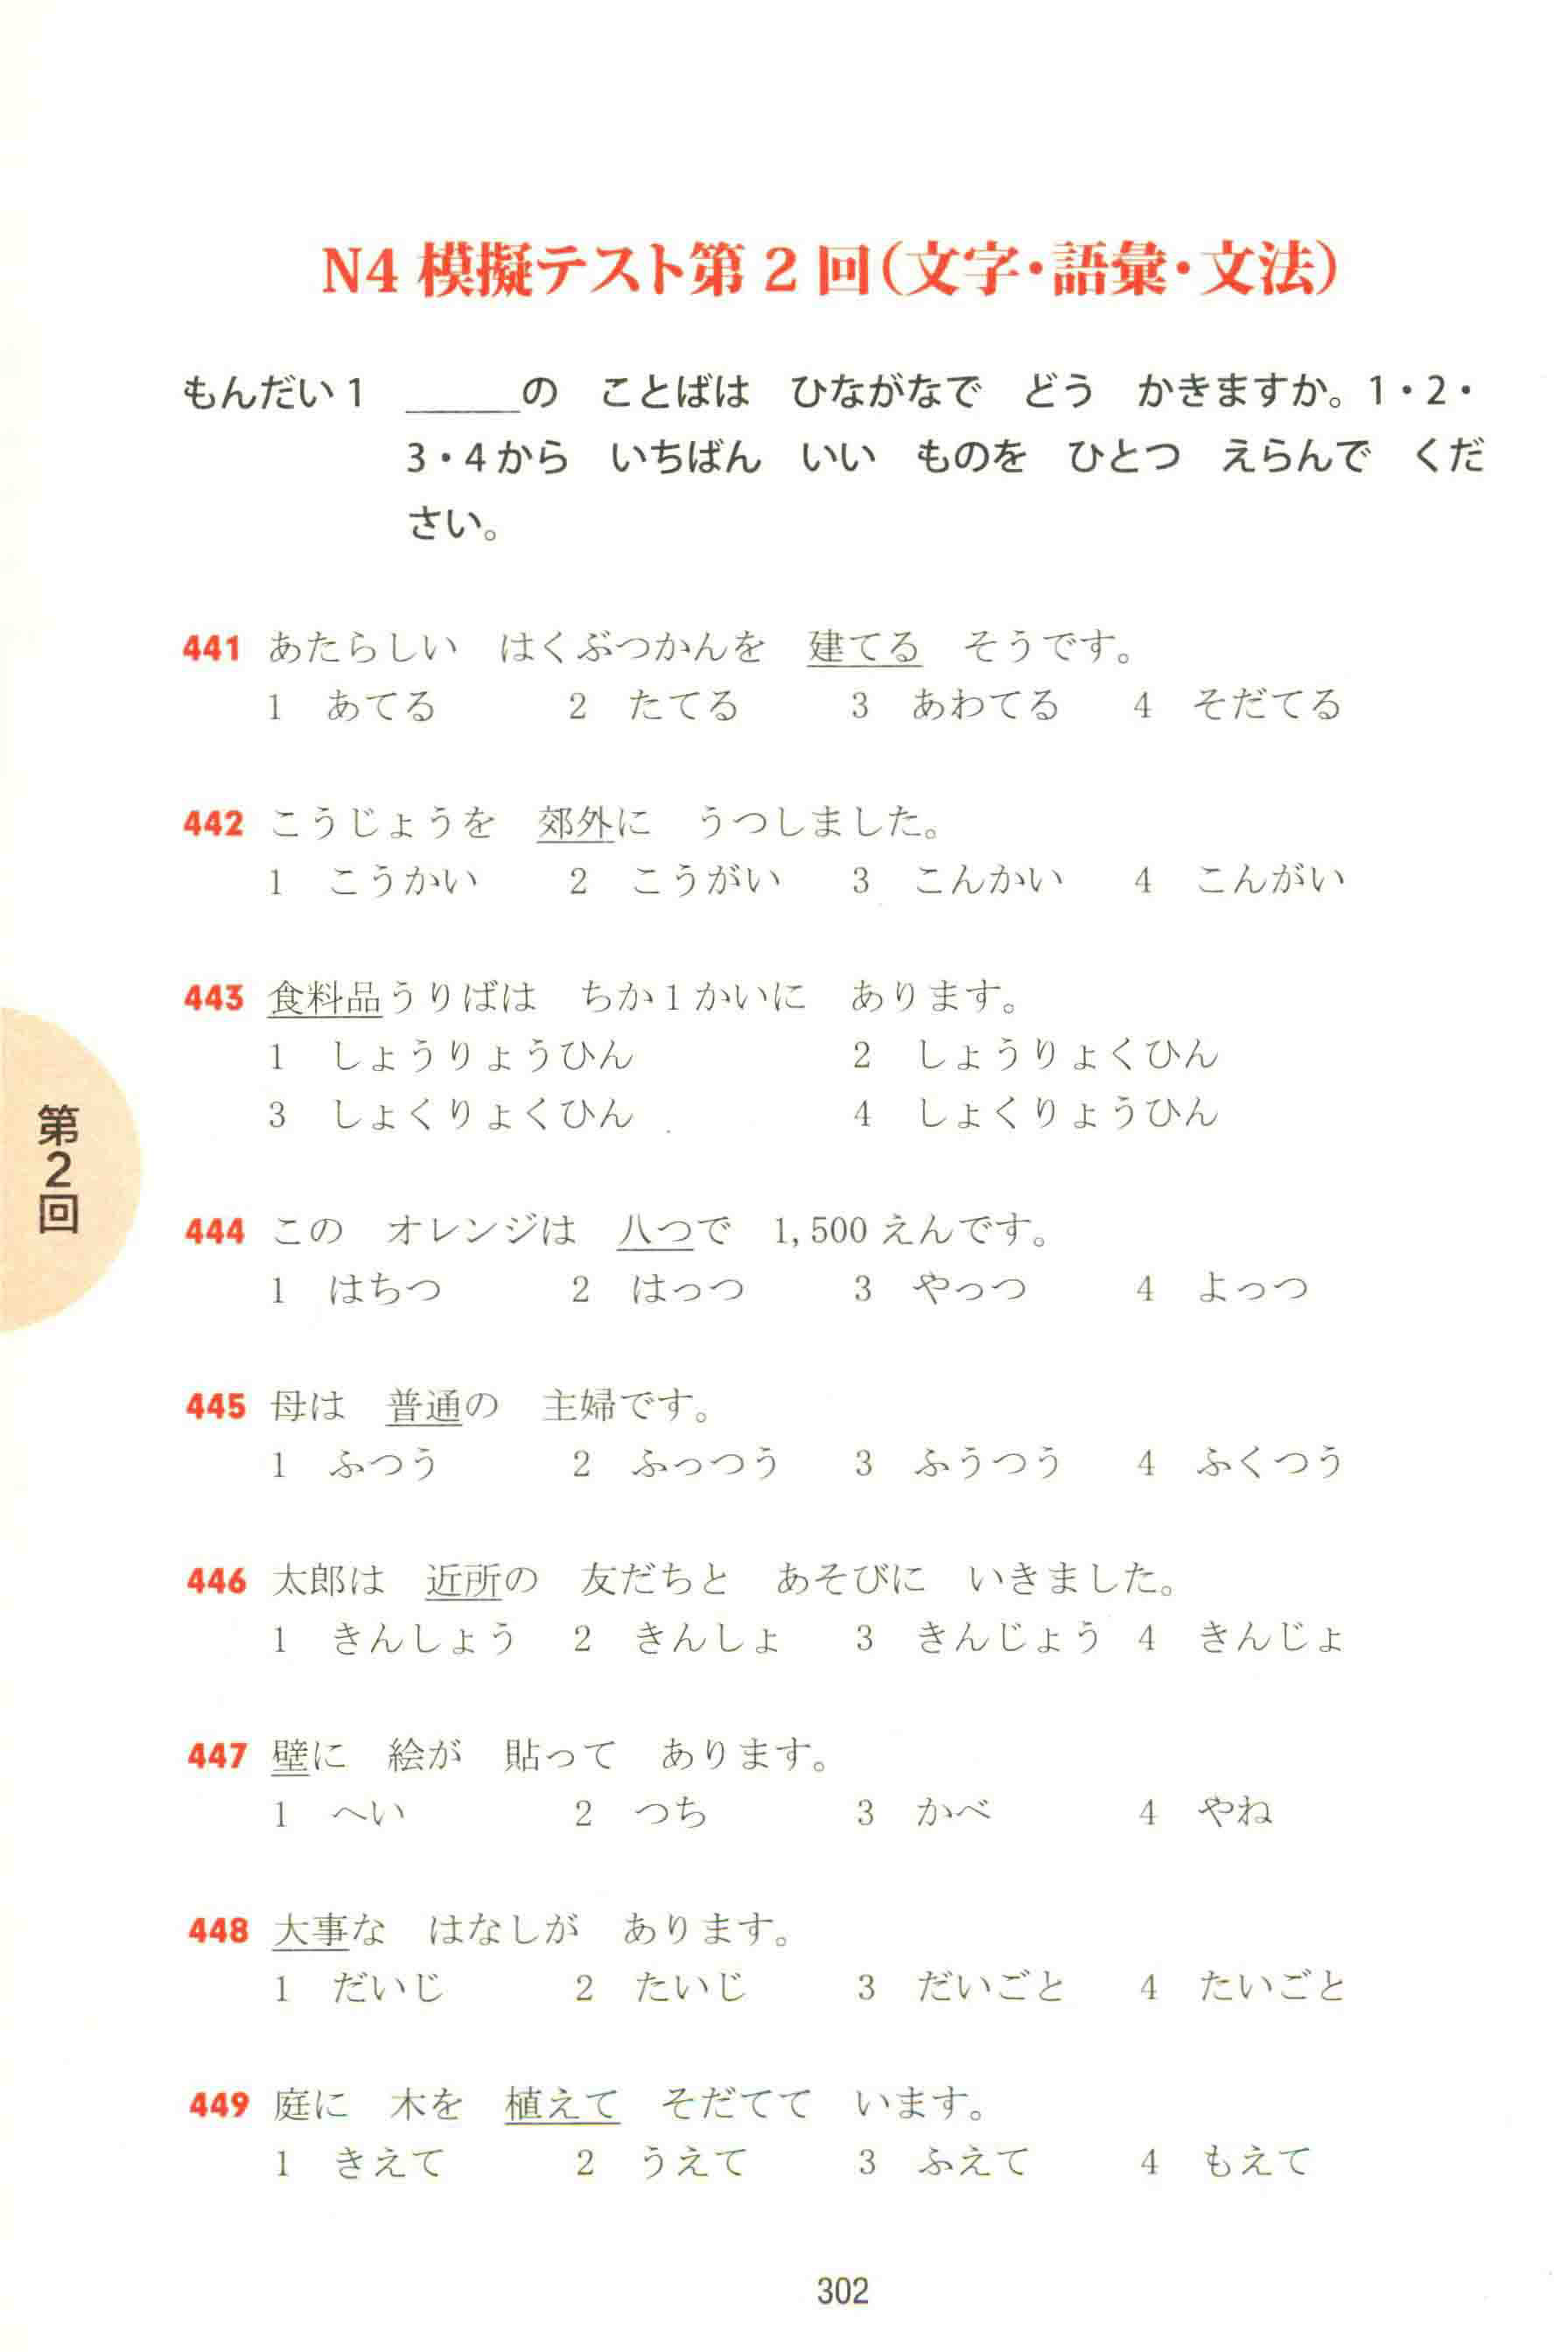 N4 模擬テスト第2回(文字・語彙・文法)
もんだい1 _____の ことばは ひながなで どう かきますか。1・2・
3・4から いちばん いい ものを ひとつ えらんで くだ
さい。
441 あたらしい はくぶつかんを 建てる そうです。
1 あてる 2 たてる 3 あわてる 4 そだてる
442 こうじょうを 郊外に うつしました。
1 こうかい 2 こうがい 3 こんかい 4 こんがい
443 食料品うりばは ちか1かいに あります。
1 しょうりょうひん 2 しょうりょくひん
3 しょくりょくひん 4 しょくりょうひん
444 この オレンジは 八つで 1,500えんです。
1 はちつ 2 はっつ 3 やっつ 4 よっつ
445 母は 普通の 主婦です。
1 ふつう 2 ふっつう 3 ふうつう 4 ふくつう
446 太郎は 近所の 友だちと あそびに いきました。
1 きんしょう 2 きんしょ 3 きんじょう 4 きんじょ
447 壁に 絵が 貼って あります。
1 へい 2 つち 3 かべ 4 やね
448 大事な はなしが あります。
1 だいじ 2 たいじ 3 だいごと 4 たいごと
449 庭に 木を 植えて そだてて います。
1 きえて 2 うえて 3 ふえて 4 もえて
第2回
302